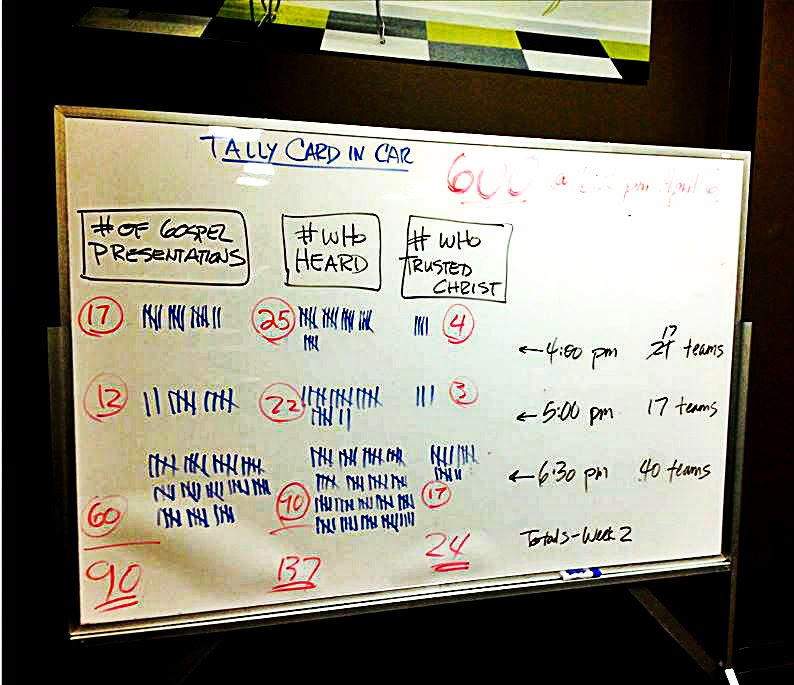 TALLY CARD IN CAR
600 @ pm April
# OF GOSPEL
PRESENTATIONS
# WHO
HEARD
# WHO
TRUSTED
CHRIST
17 25 4
17
4:00 pm 21 teams
12 22 3
5:00 pm 17 teams
6:30 pm 40 teams
60 90 17
Totals-Week 2
90 137 24